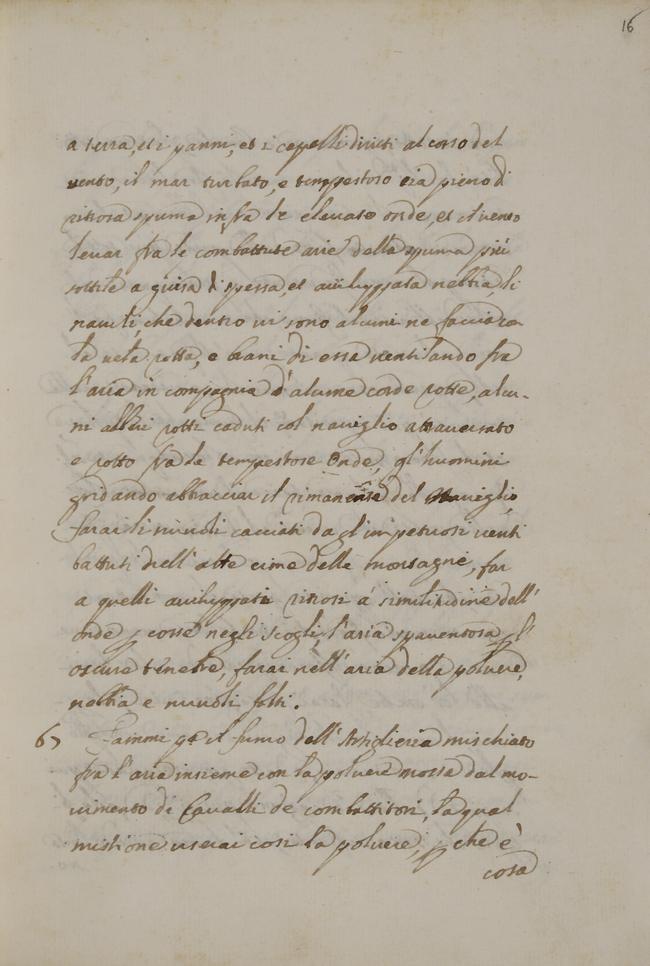 16
a terra, et i panni, et i capelli diritti al corso del
vento, il mar turbato, e tempestoso sia pieno di
ritrosa spuma infra le elevate onde, et il vento
levar fra le combattute arie della spuma più
sottile a guisa di spessa, et aviluppata nebbia, li
navili, che dentro vi sono alcuni ne facci co
la vela rotta, e brani di essa ventilando fra
l'aria in compagnia d'alcune corde rotte, alcu-
ni alberi rotti caduti col naviglio attraversato
e rotto fra le tempestose Onde, gl'huomini
gridando abbracciar il rimanente del Naviglio,
farai li nuvoli cacciati da gl'impetuosi venti
battuti nell'alte cime delle montagne, far
a quelli aviluppati ritrosi à similitudine dell'
onde percosse negli scogli, l'aria spaventosa per l'
oscure tenebre, farai nell'aria della polvere,
nebbia e nuvoli folti.
67 Farai il fumo dell'Artiglieria mischiato
fra l'aria insieme con la polvere mossa dal mo-
vimento di Cavalli de combattitori, la qual
mistione userai così la polvere, per che è
cosa